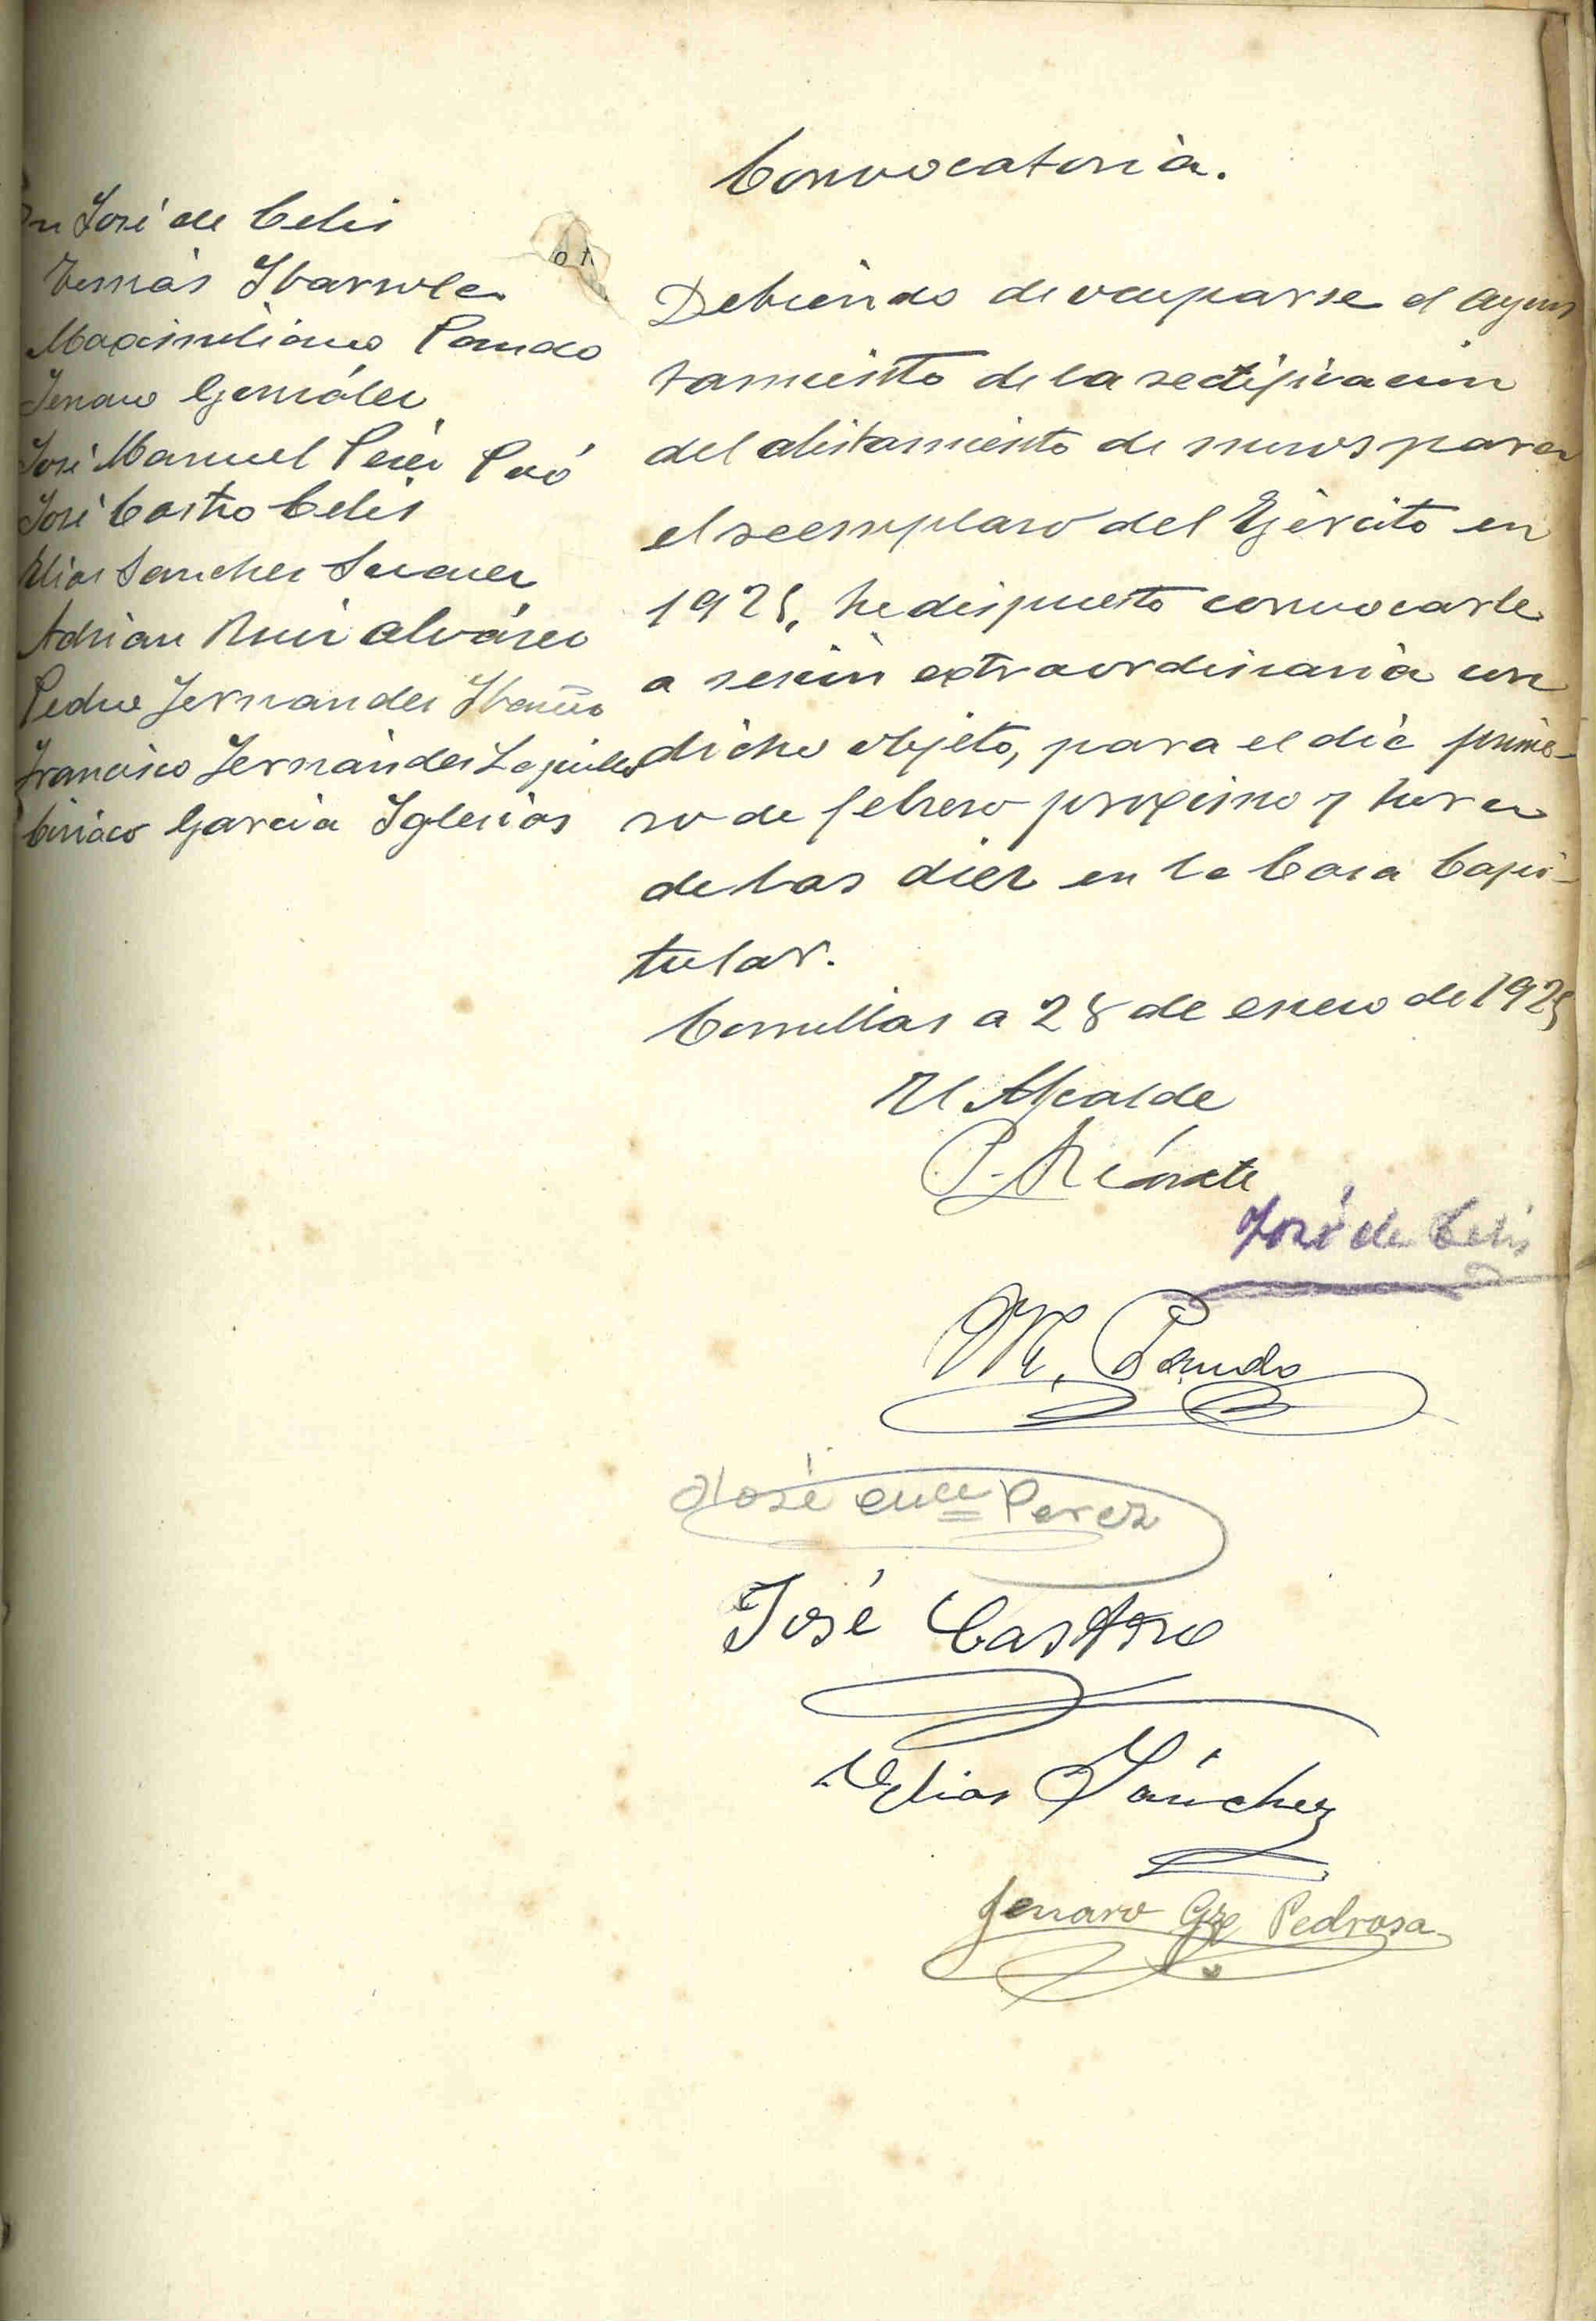 Convocatoria.
Dn José de Celis
Tomás Ibarrola
Maximiliano Pando
Jenaro González
José Manuel Pérez Poó
José Castro Celis
Elias Sanchez Suarez
Adrian Ruiz Alvárez
Pedro Fernandez Ibañez
Francisco Fernández
Ciriaco Garcia Iglesias
Debiendo de ocuparse el Ayun
tamiento de la rectificacion
del alistamiento de mozos para
el reemplazo del Ejército en
1925, he dispuesto convocarle
a sesión extraordinaria con
dicho objeto, para el dia prime-
ro de febrero proximo y hora
de las diez en la Casa Capi-
tular.
Comillas a 28 de enero de 1925
El Alcalde
P.
José de Celis
M. Pando
José Perez
José Castro
Elias Sánchez
Jenaro Gze Pedrosa